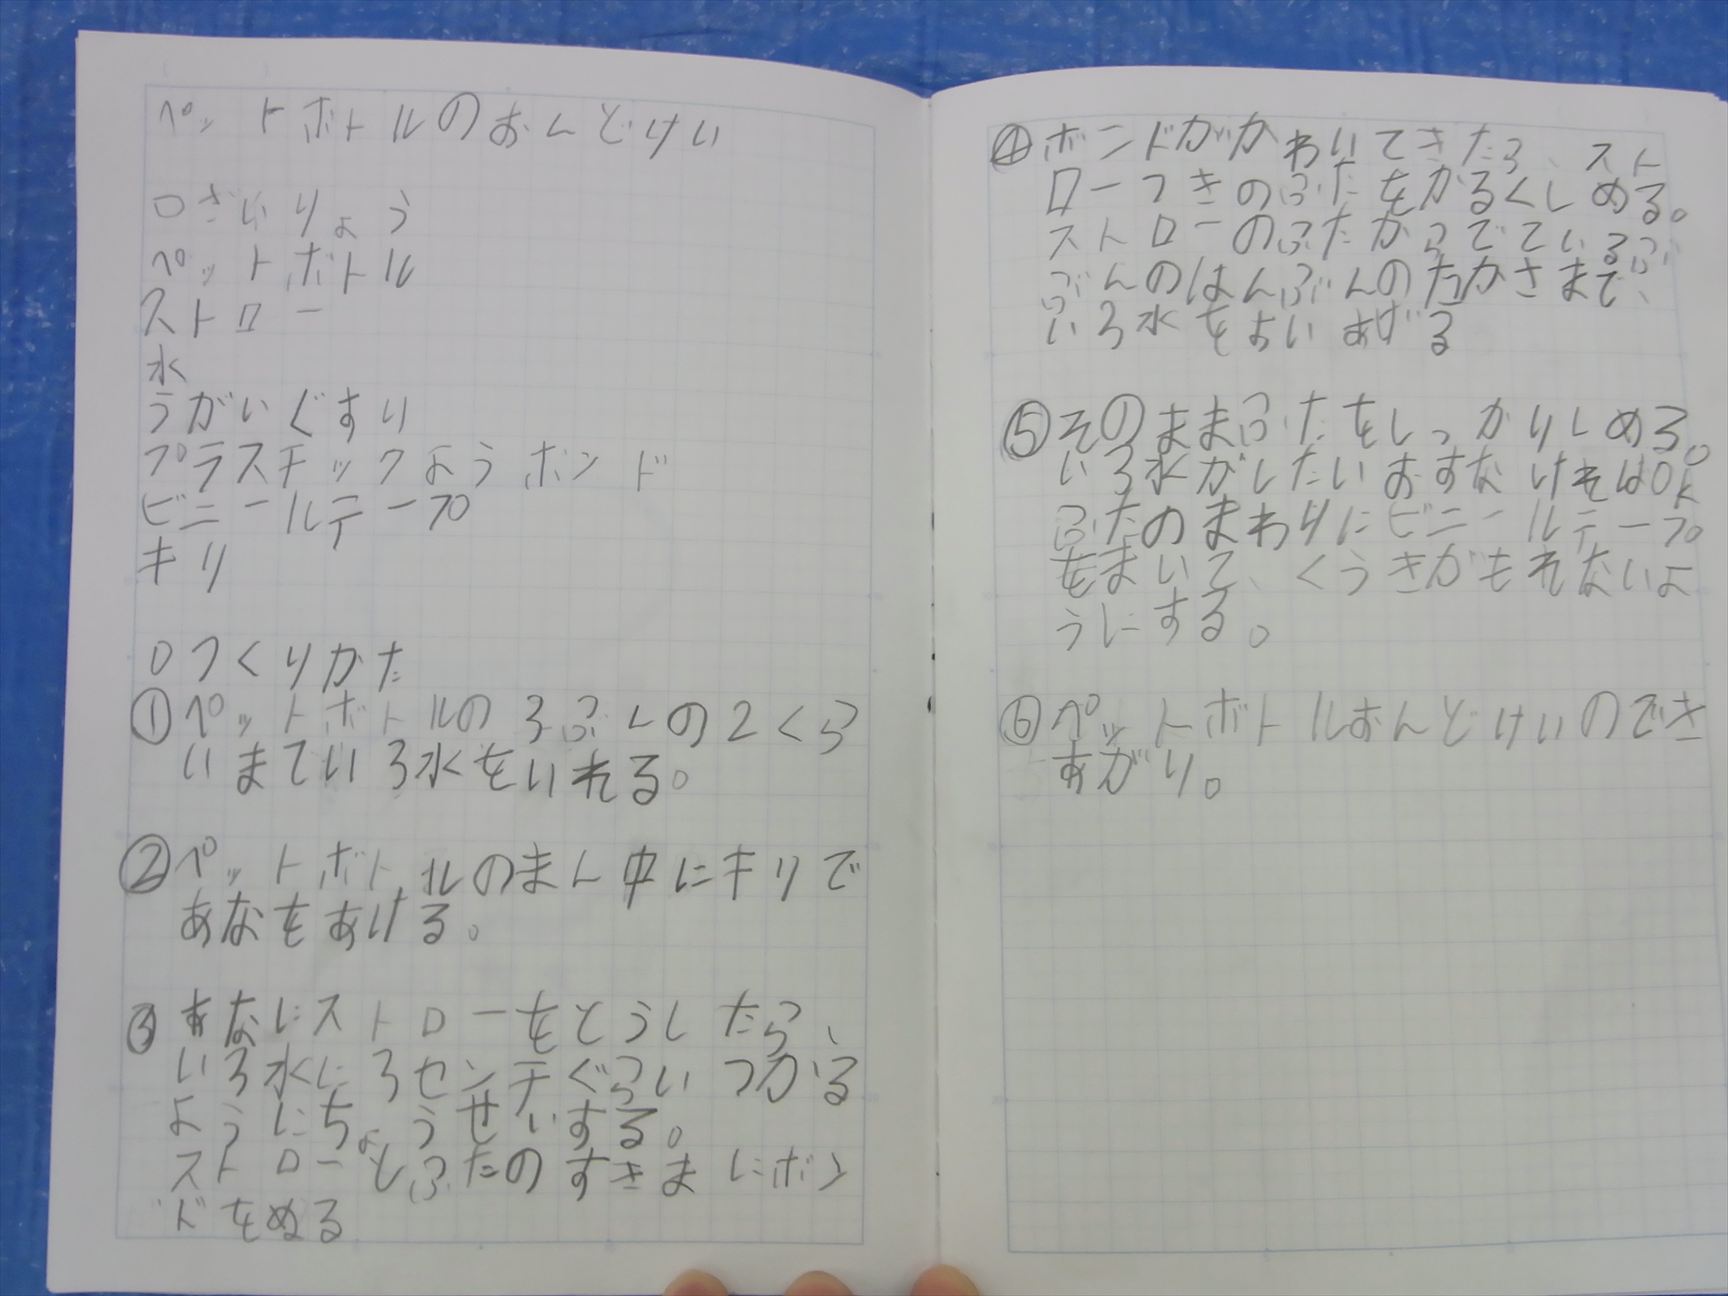 ペットボトルのおんどけい
○ざいりょう
ペットボトル
ストロー
水
うがいぐすり
プラスチックようボンド
ビニールテープ
キリ
○つくりかた
①ペットボトルの3ぶんの2くら
いまでいろ水をいれる。
②ペットボトルのまん中にキリで
あなをあける。
③あなにストローをとうしたら、
いろ水に3センチぐらいつかる
ようにちょうせいする。
ストローとふたのすきまにボン
ドをぬる
④ボンドがかわいてきたら、スト
ローつきのふたをかるくしめる。
ストローのふたからでているぶ
ぶんのはんぶんのたかさまで、
いろ水をよいあげる
⑤そのままふたをしっかりしめる。
いろ水がしたいおすなければOK
ふたのまわりにビニールテープ
をまいて、くうきがもれないよ
うにする。
⑥ペットボトルおんどけいのでき
あがり。